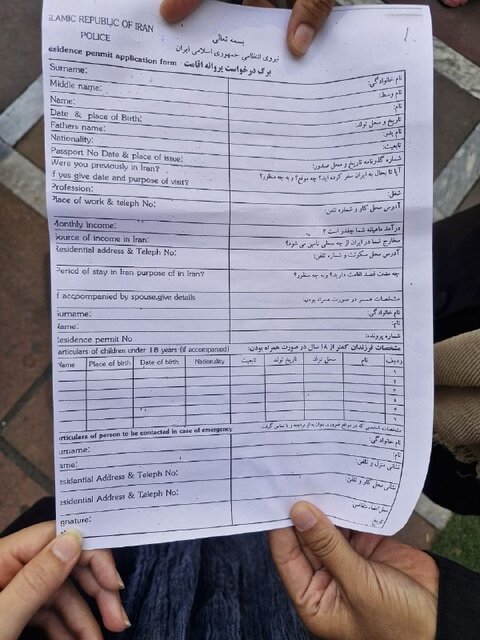 ISLAMIC REPUBLIC OF IRAN
POLICE
بسمه تعالی
نیروی انتظامی جمهوری اسلامی ایران
esidence permit application form - برگ درخواست پروانه اقامت
Surname: نام خانوادگی:
Middle name: نام وسط:
Name: نام:
Date & place of Birth: تاریخ و محل تولد:
Fathers name: نام پدر:
Nationality: تابعیت:
Passport No Date & place of issue: شماره گذرنامه تاریخ و محل صدور:
Were you previously in Iran? آیا تا بحال به ایران سفر کرده اید؟ چه موقع؟ و به چه منظور؟
f yes give date and purpose of visit?
Profession: شغل:
Place of work & teleph No: آدرس محل کار و شماره تلفن:
Monthly income: درآمد ماهیانه شما چقدر است ؟
Source of income in Iran: مخارج شما در ایران از چه محلی تأمین می شود؟
Residential address & Teleph No: آدرس محل سکونت و شماره تلفن:
Period of stay in Iran purpose of in Iran? چه مدت قصد اقامت دارید؟ و به چه منظور؟
f accpoomponied by spouse,give details مشخصات همسر در صورت همراه بودن:
urname: نام خانوادگی:
Name: نام:
Residence permit No شماره پرونده:
articulars of children under 18 years (if accompanied) مشخصات فرزندان کمتر از ۱۸ سال در صورت همراه بودن:
Name Place of birth Date of birth Nationality تابعیت تاریخ تولد محل تولد نام ردیف
۱
۲
۳
۴
۵
۶
articulars of person to be contacted in case of emergency مشخصات شخصی که در مواقع ضروری بتوان به او مراجعه و یا تماس گرفت.
urname: نام خانوادگی:
ame: نام:
esidential Address & Teleph No: نشانی منزل و تلفن:
esidential Address & Teleph No: نشانی محل کار و تلفن:
gnature: محل امضاء متقاضی:
تاریخ: